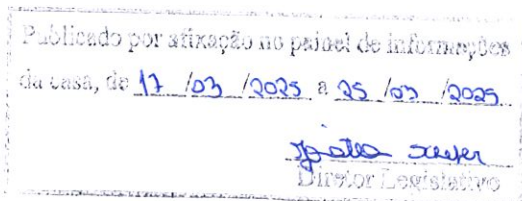 Publicado por afixação no painel de informações
da casa, de 17 /03 /2025 a 25 /03 /2025
Diretor Legislativo